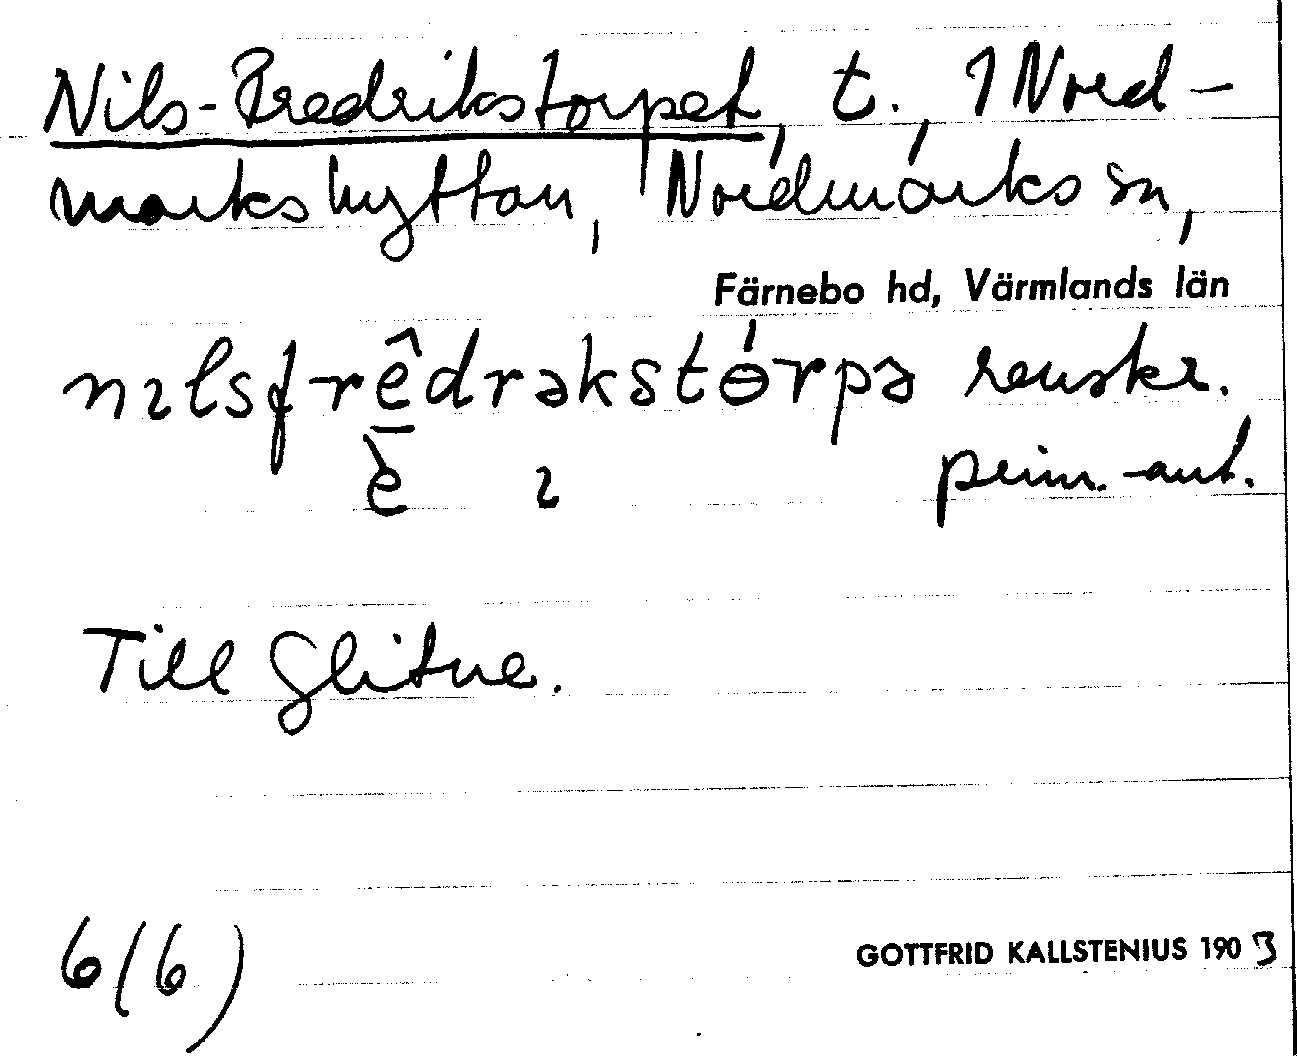 Nils-Fredrikstorpet, t., 1 Nord-
markshyttan, Nordmarks sn,
Färnebo hd, Värmlands län
nɪlsfrêdrəkstɵ́rpə renskr.
è ɪ prim.-ant.
Till Glitne.
6(6)
GOTTFRID KALLSTENIUS 1903